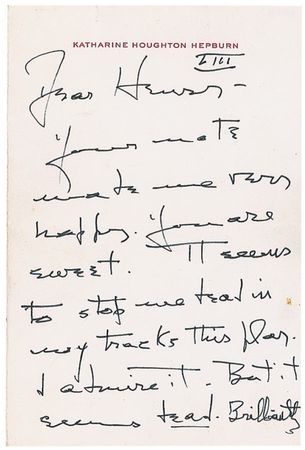 KATHARINE HOUGHTON HEPBURN
I III
Dear Henry -
Your note
made me very
happy. You are
sweet. It seems
to stop me dead in
my tracks this play.
I admire it. But it
seems dead. Brilliantly